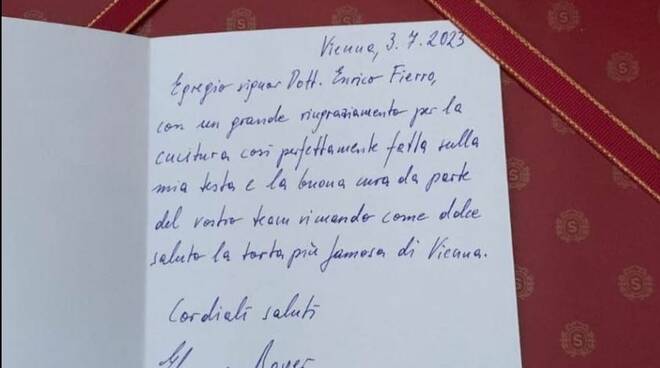 Vienna, 3. 7. 2023
Egregio signor Dott. Enrico Fierro,
con un grande ringraziamento per la
cucitura così perfettamente fatta sulla
mia testa e la buona cura da parte
del vostro team rimando come dolce
saluto la torta più famosa di Vienna.
Cordiali saluti
S
S
S
S
S
S